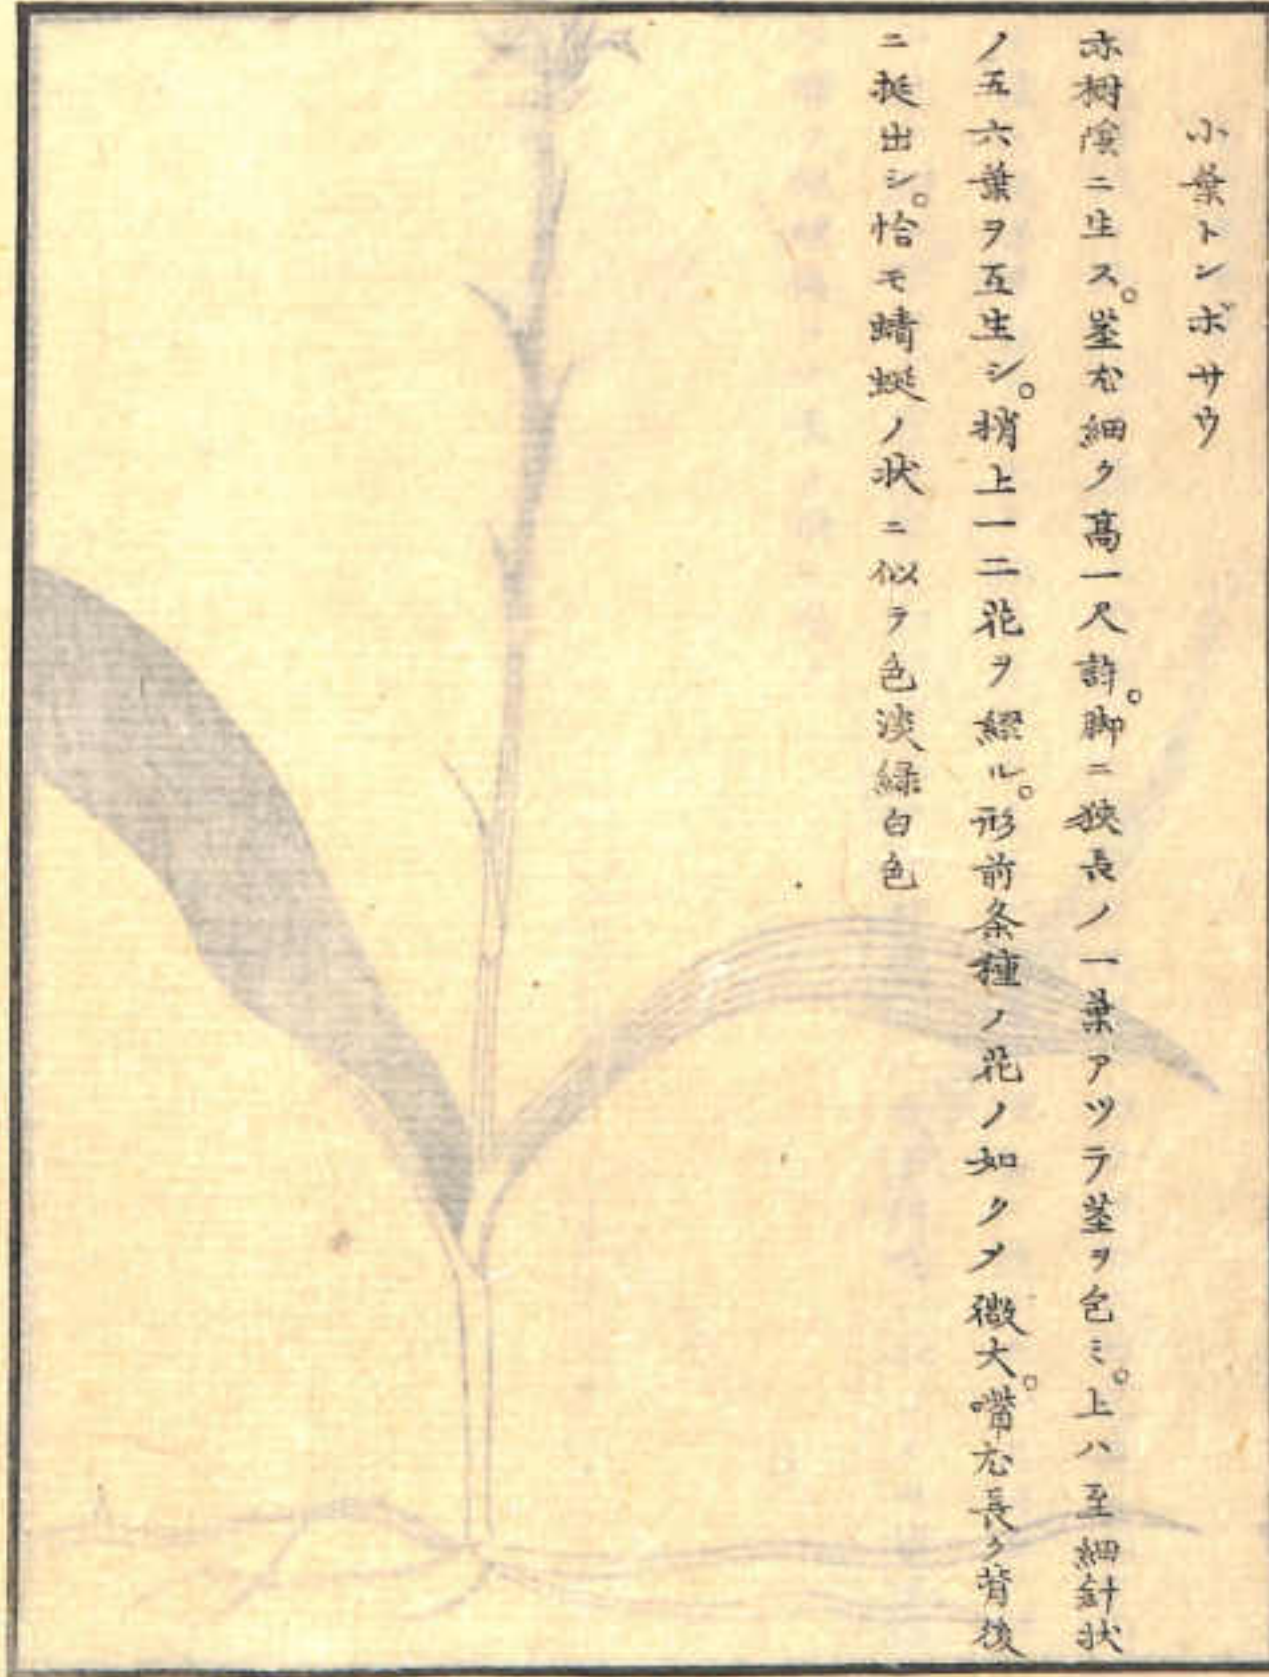 小葉トンボサウ
亦樹陰ニ生ス。茎尤細ク高一尺許。脚ニ狹長ノ一葉アツテ茎ヲ包ミ。上ハ至細針状
ノ五六葉ヲ互生シ。梢上一二花ヲ綴ル。形前条種ノ花ノ如クメ微大。嘴尤長ク背後
ニ挺出シ。恰モ蜻蜓ノ状ニ似テ色淡緑白色